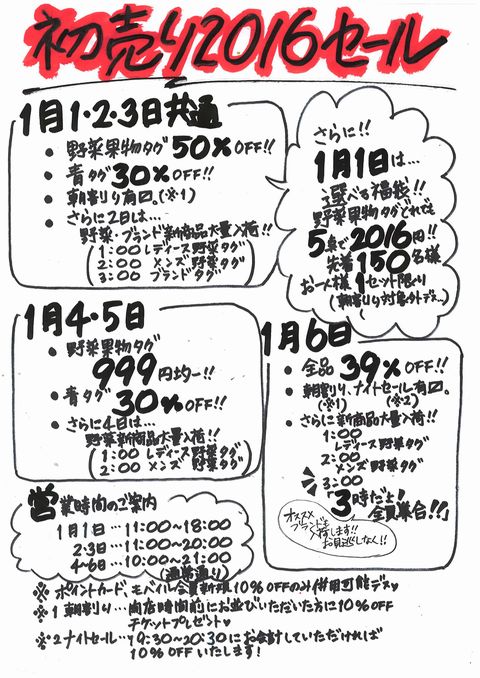 初売り2016セール
1月1・2・3日共通
• 野菜果物タグ50%OFF!!
• 青タグ30%OFF!!
• 朝割り有り。(※1)
• さらに2日は…
野菜・ブランド新商品大量入荷!!
(1:00 レディース野菜タグ
2:00 メンズ野菜タグ
3:00 ブランドタグ)
さらに!!
1月1日は…
選べる福袋!!
野菜果物タグどれでも
5点で2016円!!
先着150名様
お一人様1セット限り
(朝割り対象外デス…)
1月4・5日
• 野菜果物タグ
999円均一!!
• 青タグ
30%OFF!!
• さらに4日は…
野菜新商品大量入荷!!
(1:00 レディース野菜タグ
2:00 メンズ野菜タグ)
1月6日
• 全品39%OFF!!
• 朝割り、ナイトセール有り。
(※1) (※2)
• さらに新商品大量入荷!!
1:00
レディース野菜タグ
2:00
メンズ野菜タグ
3:00
「3時だよ!
全員集合!!」
オススメ
ブランドも
入荷します!!
お見逃しなく!!
営業時間のご案内
1月1日…11:00~18:00
2・3日…11:00~20:00
4~6日…10:00~21:00
(通常通り)
※ポイントカード、モバイル会員新規10%OFFのみ併用可能デス♥
※1 朝割り…開店時間前にお並びいただいた方に10%OFF
チケットプレゼント♥
※2ナイトセール…19:30~20:30にお会計していただければ
10%OFFいたします!